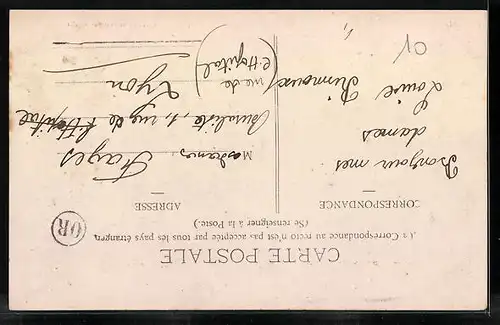 CARTE POSTALE
La Correspondance au recto n'est pas acceptée par tous les pays étrangers
(Se renseigner à la Poste.)
OR
CORRESPONDANCE
Bonjour mes
dames
Louise
ADRESSE
Madame Fayes
1, rue de l'Hopital
rue de
l'Hopital
Lyon